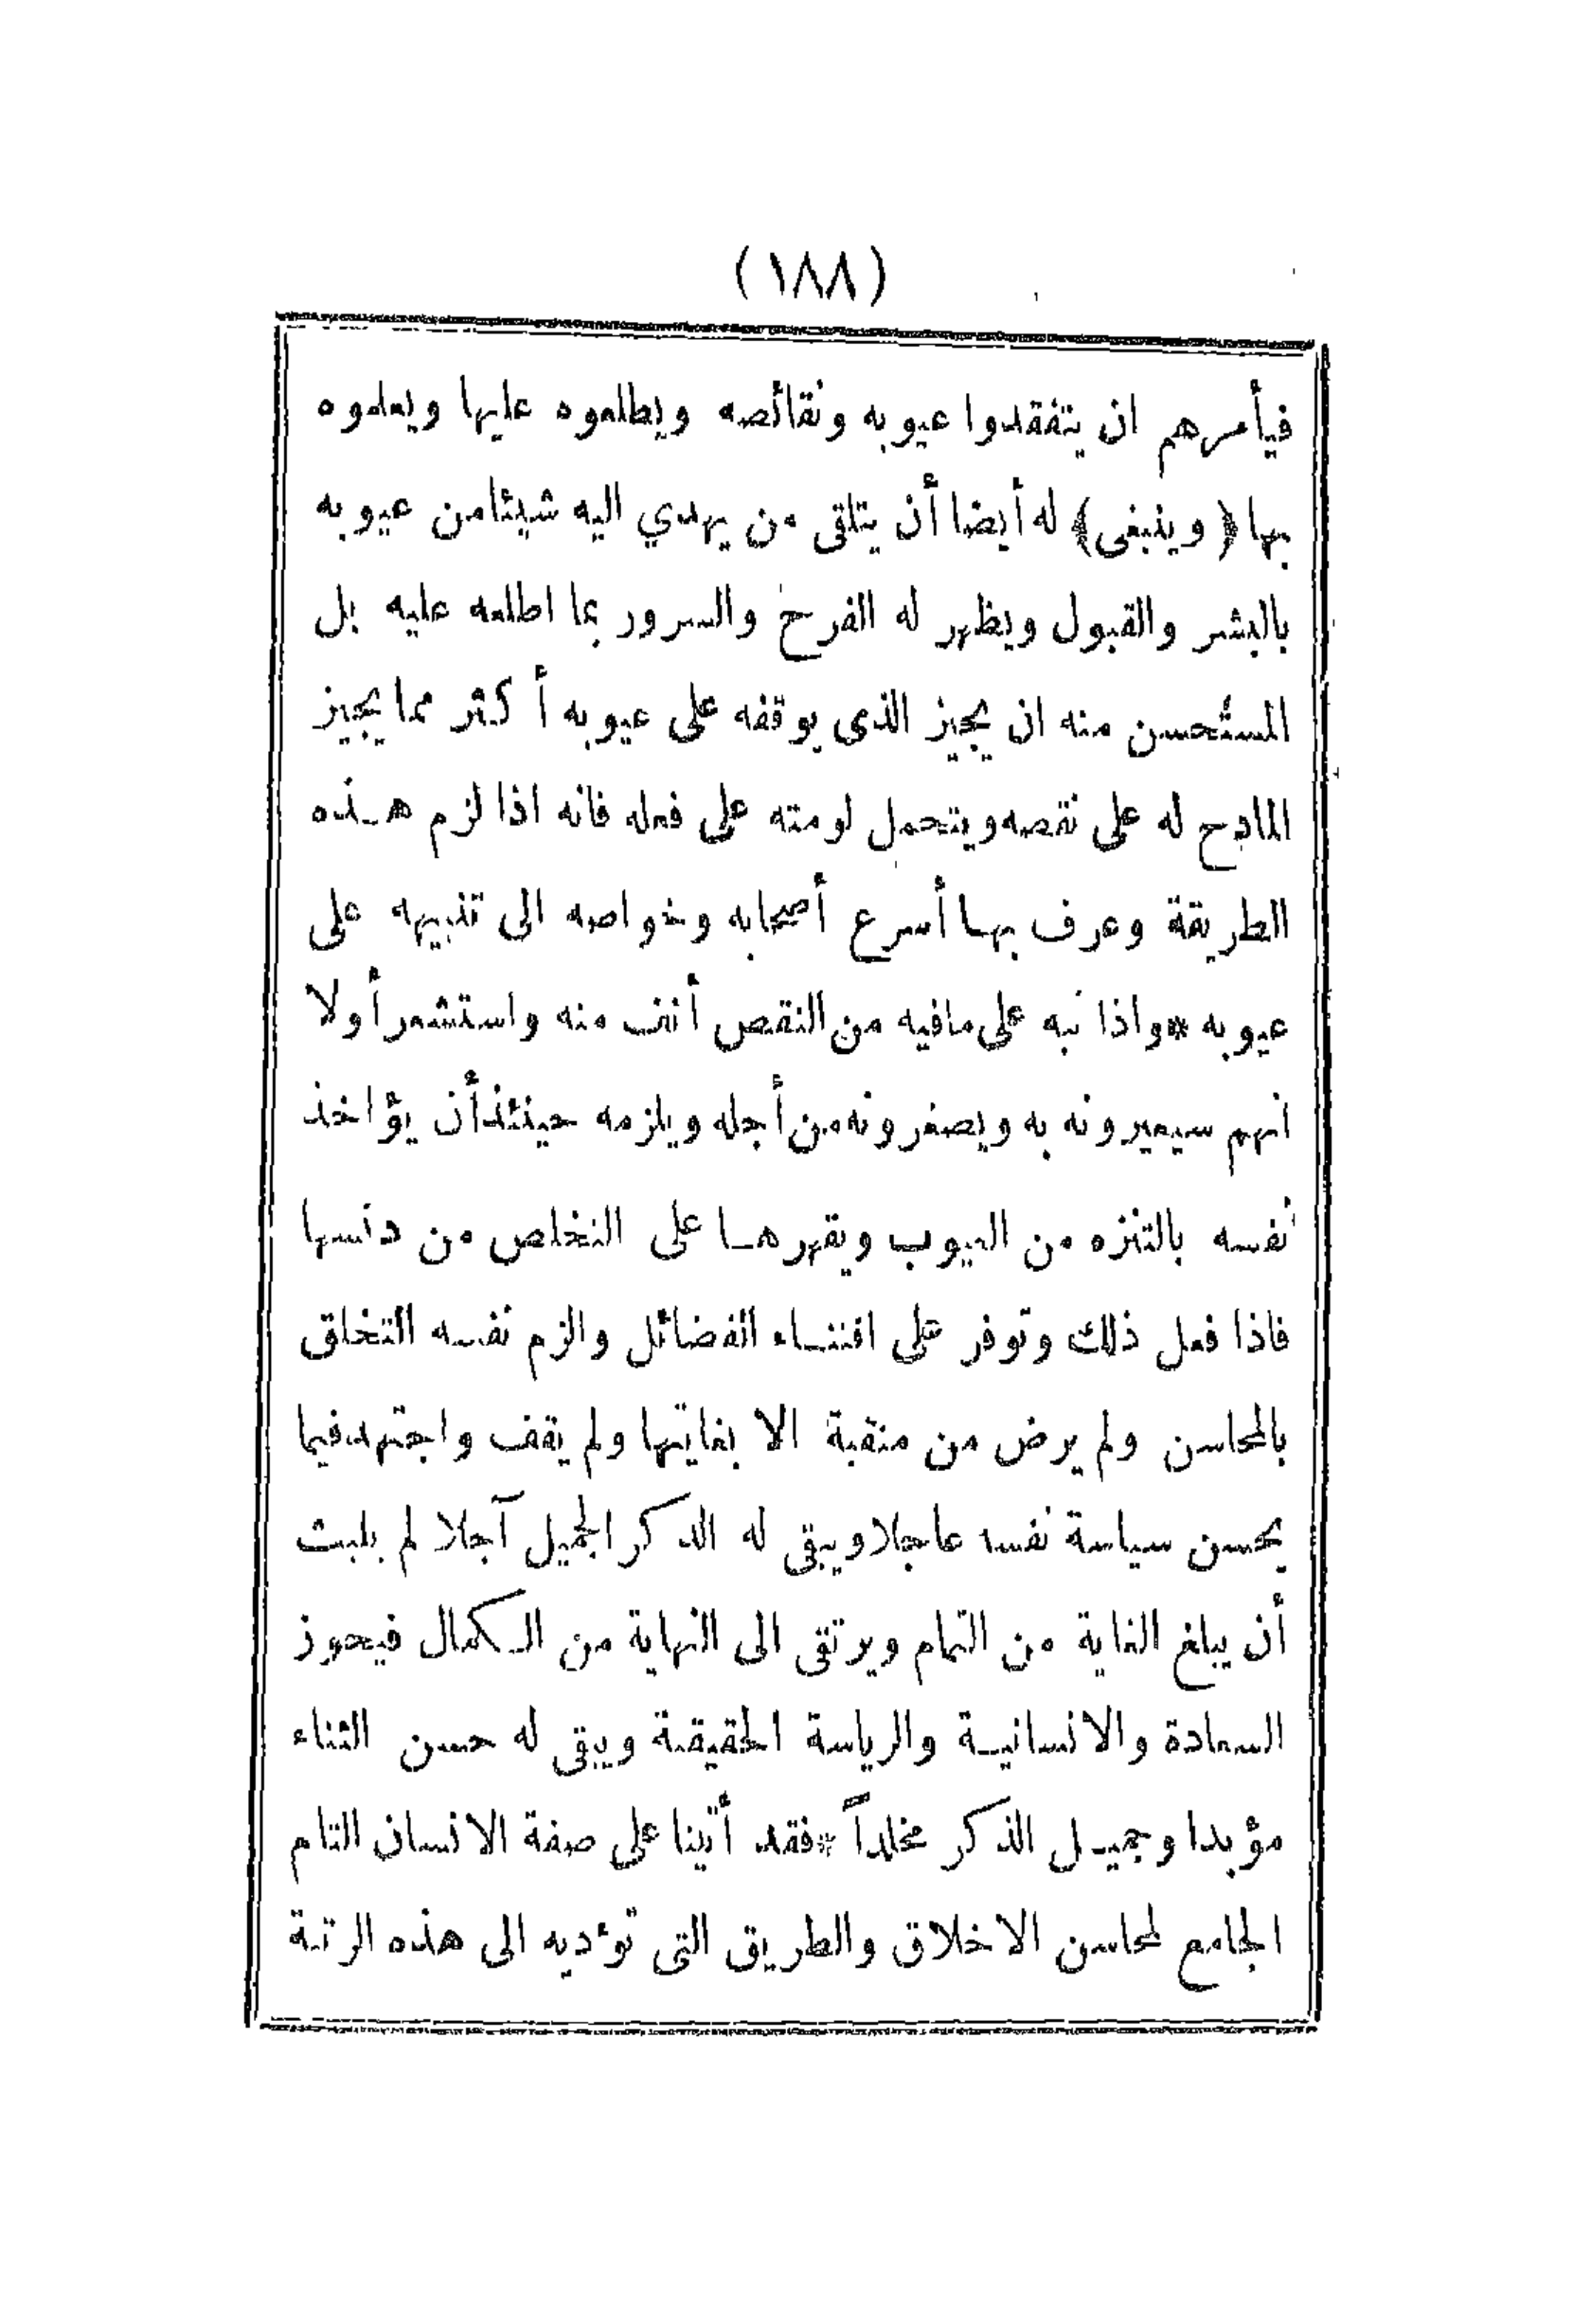 (١٨٨)
فيأمرهم ان يتفقدوا عيوبه ونقائصه ويطلعوه عليها ويعلموه
بها ﴿وينبغى﴾ له أيضا أن يتلقى من يهدي اليه شيئا من عيوبه
بالبشر والقبول ويظهر له الفرح والسرور بما اطلعه عليه بل
المستحسن منه ان يجيز الذى يوقفه على عيوبه أكثر مما يجيز
المادح له على نقصه ويتحمل لومته على فعله فانه اذا لزم هذه
الطريقة وعرف بها أسرع أصحابه وخواصه الى تنبيهه على
عيوبه * واذا نبه على مافيه من النقص أنف منه واستشعر أولا
انهم سيعيرونه به ويصغرونه من أجله ويلزمه حينئذ أن يؤاخذ
نفسه بالتنزه من العيوب ويقهرها على التخلص من دنسها
فاذا فعل ذلك وتوفر على اقتناء الفضائل والزم نفسه التخلق
بالمحاسن ولم يرض من منقبة الا بغايتها ولم يقف واجتهد فيما
يحسن سياسة نفسه عاجلا ويبقى له الذكر الجميل آجلا لم يلبث
أن يبلغ الغاية من التمام ويرتقى الى النهاية من الكمال فيحوز
السعادة والانسانية والرياسة الحقيقية ويبقى له حسن الثناء
مؤبدا وجميل الذكر مخلداً * فقد أتينا على صفة الانسان التام
الجامع لمحاسن الاخلاق والطريق التى تؤديه الى هذه الرتبة